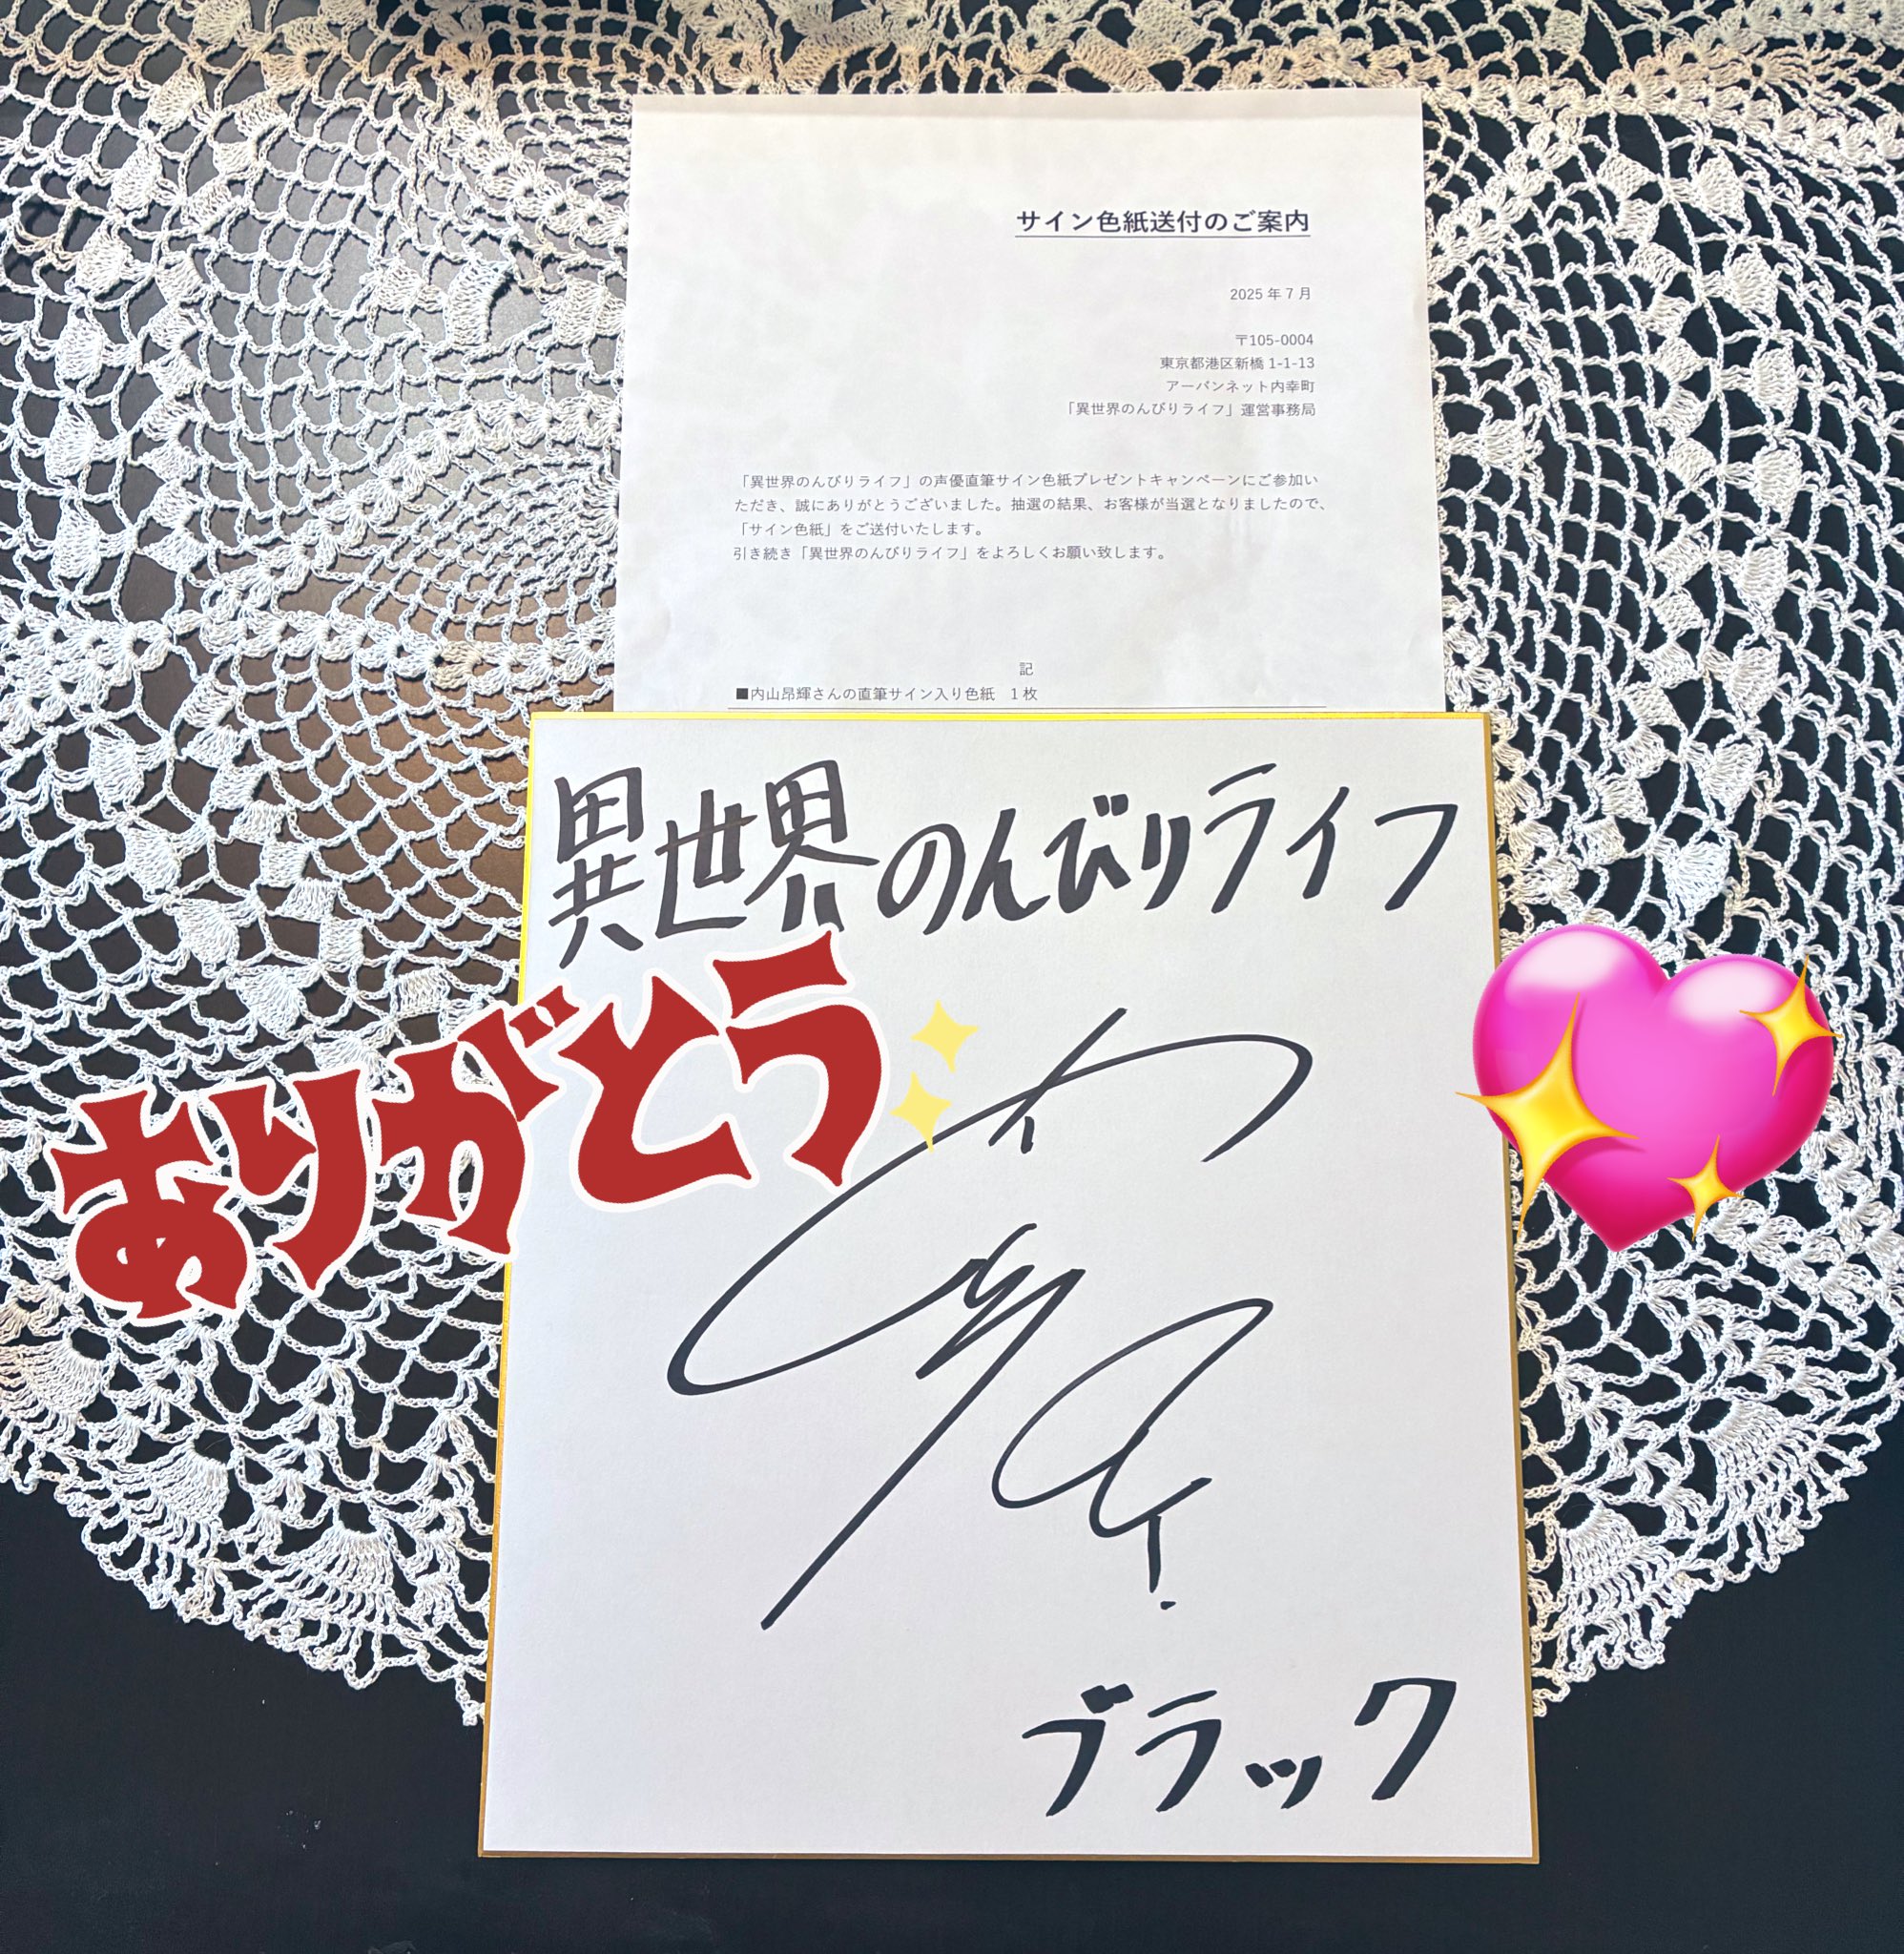 サイン色紙送付のご案内
2025年7月
〒105-0004
東京都港区新橋 1-1-13
アーバンネット内幸町
「異世界のんびりライフ」運営事務局
「異世界のんびりライフ」の声優直筆サイン色紙プレゼントキャンペーンにご参加い
ただき、誠にありがとうございました。抽選の結果、お客様が当選となりましたので、
「サイン色紙」をご送付いたします。
引き続き「異世界のんびりライフ」をよろしくお願い致します。
記
■内山昂輝さんの直筆サイン入り色紙　1枚
異世界のんびりライフ
ありがとう
ブラック